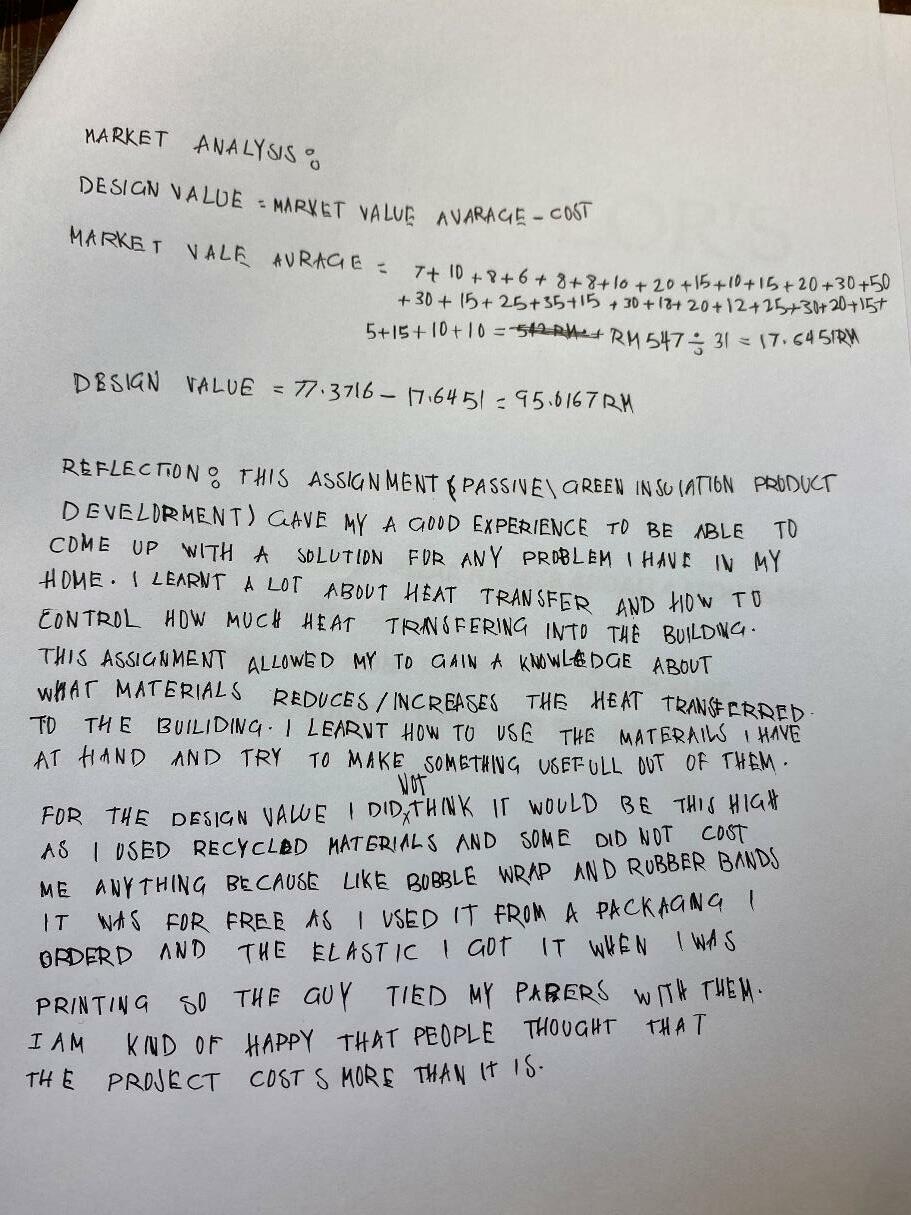 MARKET ANALYSIS:
DESIGN VALUE = MARKET VALUE AVARAGE - COST
MARKET VALE AVRAGE = 7+ 10 +8+6 + 8+8+10 + 20 +15+10+15+20+30+50
+30 + 15 + 25+35+15 +30+18+20+12+25+30+20+15+
5+15+10+10 = 542 RM + RM 547 ÷ 31 = 17.6451RM
DESIGN VALUE = 77.3716 - 17.6451 = 95.0167 RM
REFLECTION: THIS ASSIGNMENT (PASSIVE\GREEN INSULATION PRODUCT
DEVELORMENT) GAVE MY A GOOD EXPERIENCE TO BE ABLE TO
COME UP WITH A SOLUTION FOR ANY PROBLEM I HAVE IN MY
HOME. I LEARNT A LOT ABOUT HEAT TRANSFER AND HOW TO
CONTROL HOW MUCH HEAT TRANSFERING INTO THE BUILDING.
THIS ASSIGNMENT ALLOWED MY TO GAIN A KNOWLEDGE ABOUT
WHAT MATERIALS REDUCES/INCREASES THE HEAT TRANSFERRED
TO THE BUILIDING. I LEARNT HOW TO USE THE MATERAILS I HAVE
AT HAND AND TRY TO MAKE SOMETHING USEFULL OUT OF THEM.
FOR THE DESIGN VALUE I DID NOT THINK IT WOULD BE THIS HIGH
AS I USED RECYCLED MATERIALS AND SOME DID NOT COST
ME ANYTHING BECAUSE LIKE BUBBLE WRAP AND RUBBER BANDS
IT WAS FOR FREE AS I USED IT FROM A PACKAGING I
ORDERD AND THE ELASTIC I GOT IT WHEN I WAS
PRINTING SO THE GUY TIED MY PAPERS WITH THEM.
I AM KIND OF HAPPY THAT PEOPLE THOUGHT THAT
THE PROJECT COSTS MORE THAN IT IS.